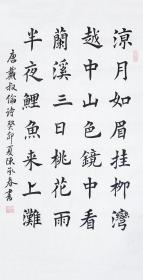 涼月如眉挂柳灣
越中山色鏡中看
蘭溪三日桃花雨
半夜鯉魚来上灘
唐戴叔倫詩癸卯夏陳永春書